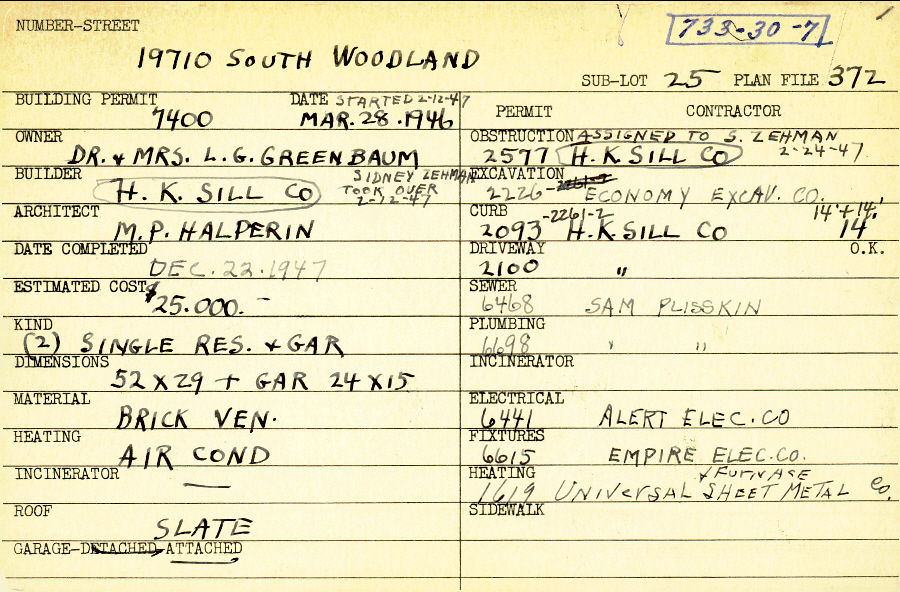 NUMBER-STREET
733-30-7
19710 SOUTH WOODLAND
SUB-LOT 25 PLAN FILE 372
BUILDING PERMIT 7400
DATE STARTED 2-12-47
MAR. 28. 1946
OWNER
DR. & MRS. L. G. GREENBAUM
BUILDER
H. K. SILL CO
SIDNEY ZEHMAN
TOOK OVER
2-12-47
ARCHITECT
M. P. HALPERIN
DATE COMPLETED
DEC. 22. 1947
ESTIMATED COST
$25.000. -
KIND
(2) SINGLE RES. & GAR
DIMENSIONS
52 X 29 + GAR 24 X 15
MATERIAL
BRICK VEN.
HEATING
AIR COND
INCINERATOR
—
ROOF
SLATE
GARAGE-DETACHED-ATTACHED
PERMIT CONTRACTOR
OBSTRUCTION ASSIGNED TO S. ZEHMAN
2577 H. K. SILL CO 2-24-47
EXCAVATION
2226 - ECONOMY EXCAV. CO.
CURB -2261-2 14' + 14'
2093 H. K. SILL CO 14
DRIVEWAY O.K.
2100 "
SEWER
6468 SAM PLISSKIN
PLUMBING
6698 " "
INCINERATOR
ELECTRICAL
6441 ALERT ELEC. CO
FIXTURES
6615 EMPIRE ELEC. CO.
HEATING & FURNASE
1619 UNIVERSAL SHEET METAL CO.
SIDEWALK